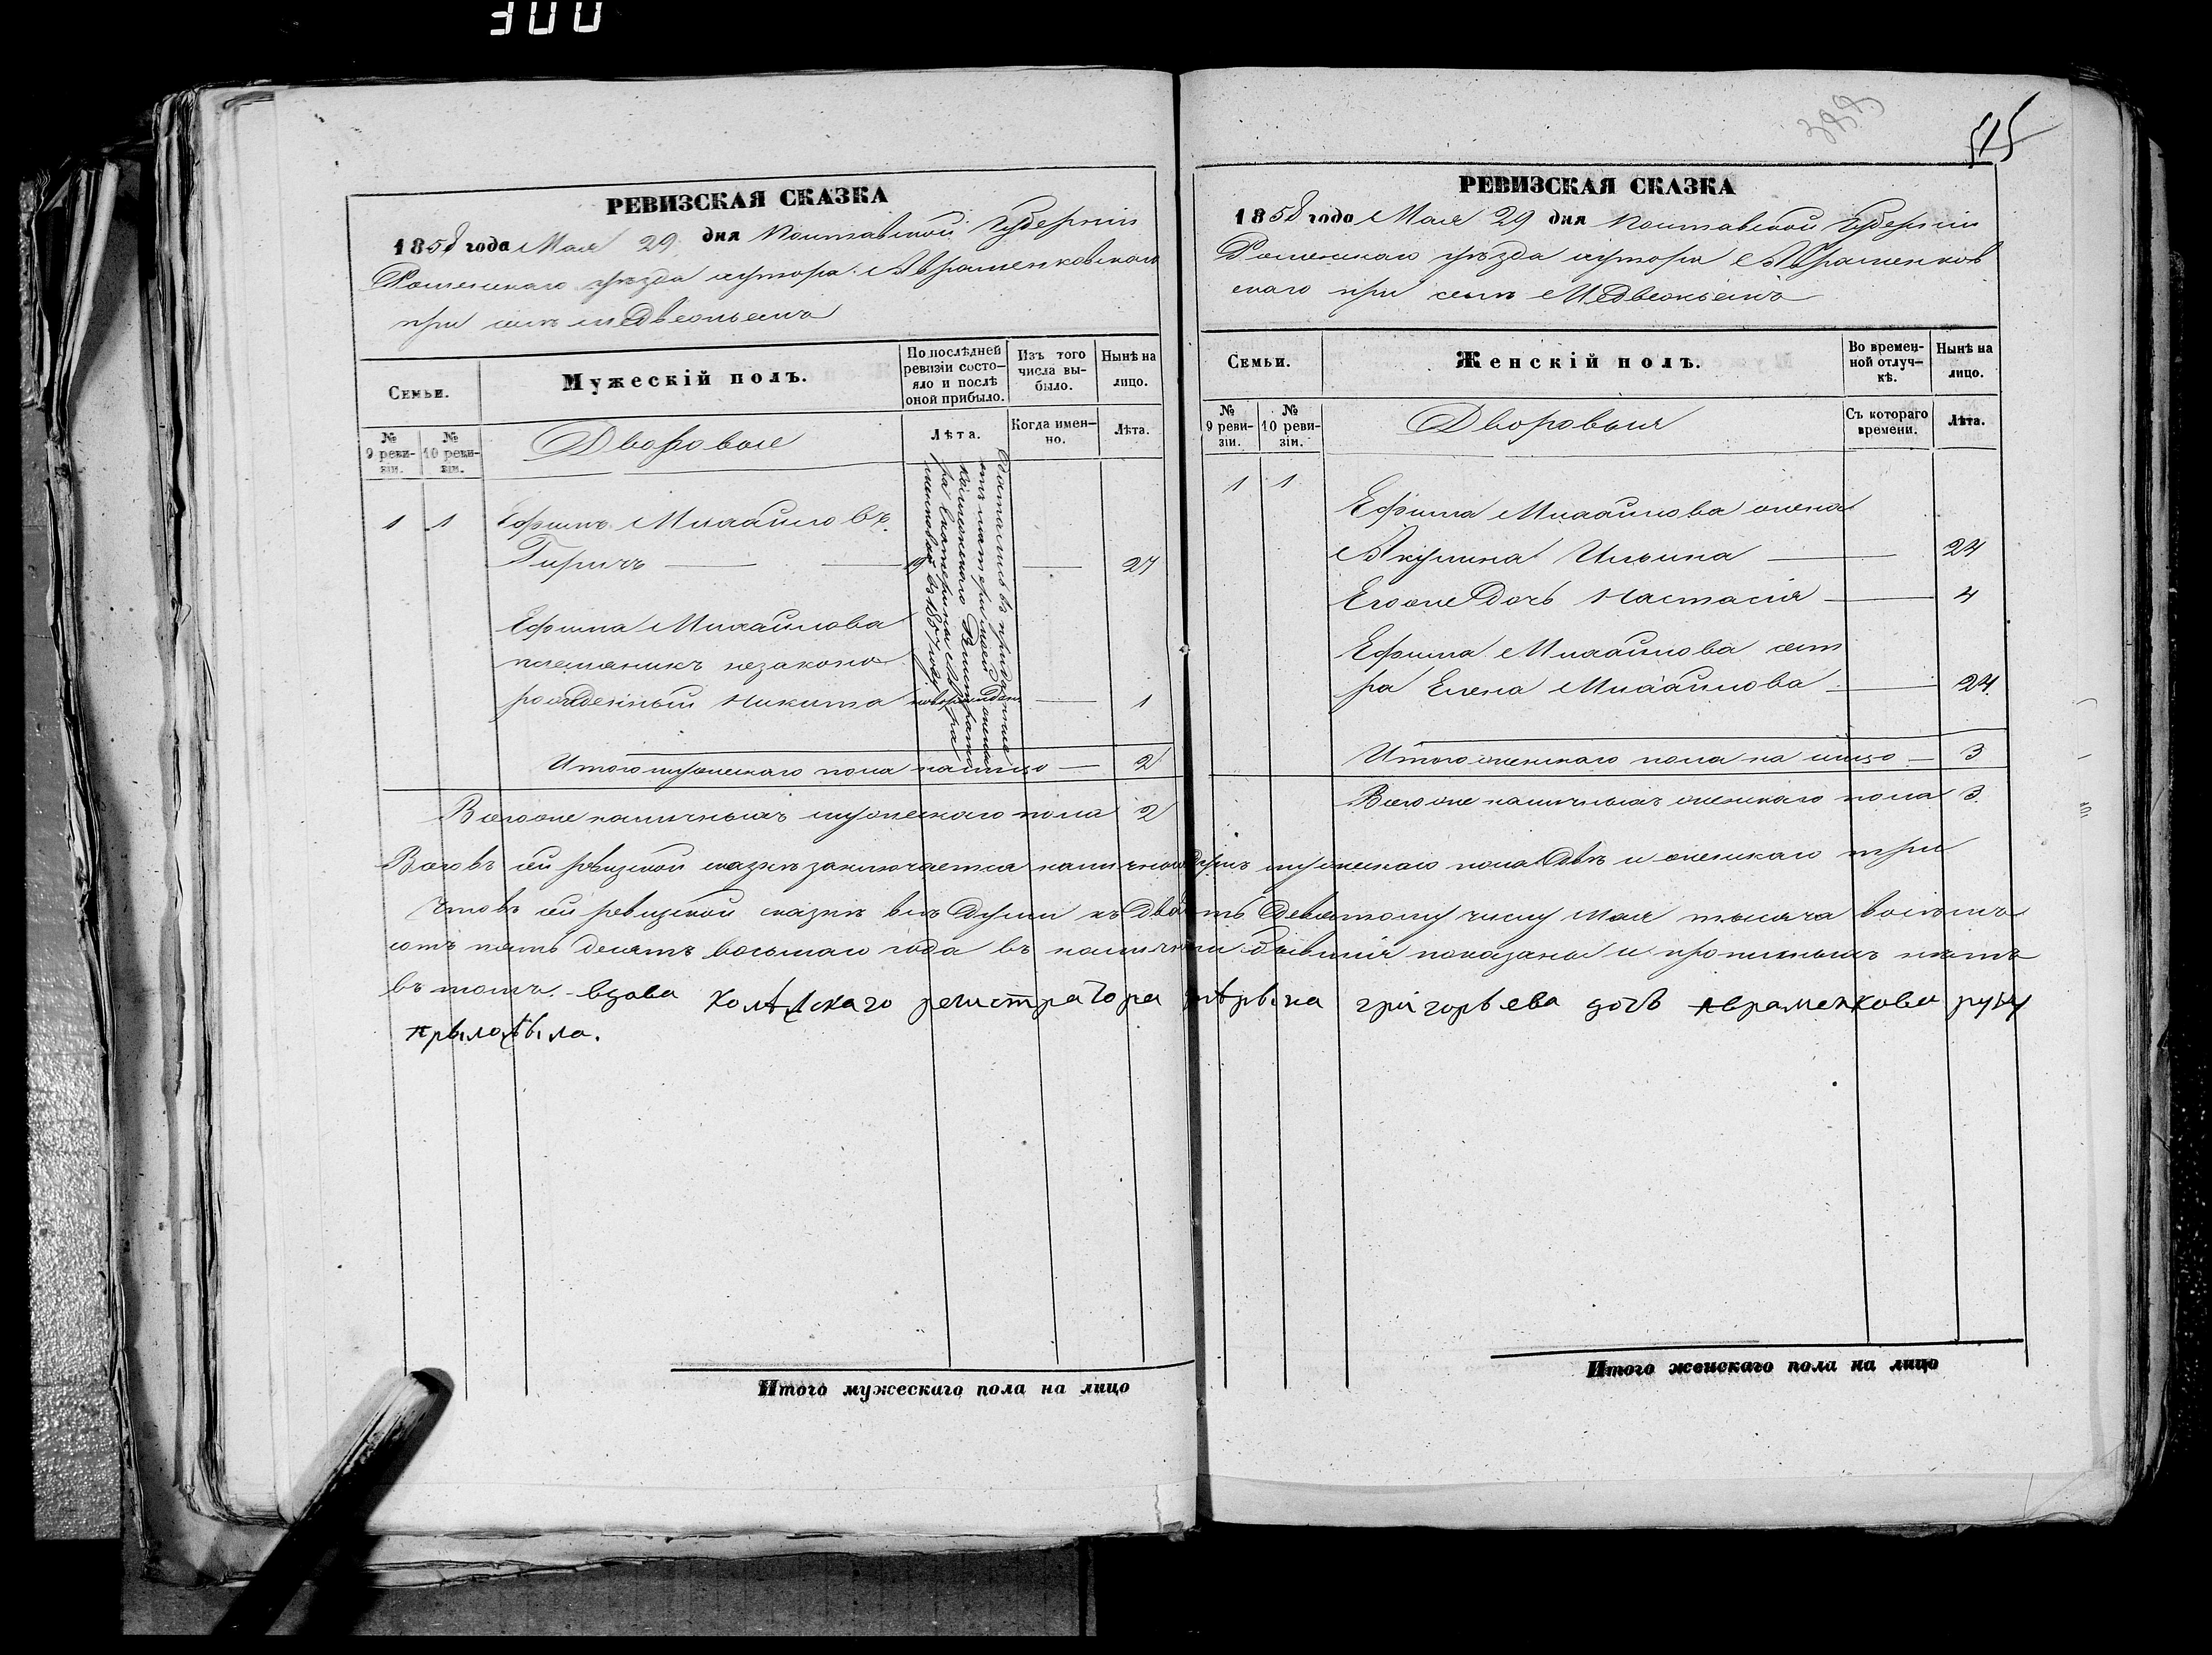 300
РЕВИЗСКАЯ СКАЗКА
1858 года Мая 29 дня Полтавской Губерніи
Роменскаго уѣзда хутора Авраменковскаго
при селѣ Медвежьемъ
Семьи.
Мужескій полъ.
По послѣдней ревизіи состояло и послѣ оной прибыло.
Изъ того числа выбыло.
Нынѣ на лицо.
№ 9 ревизіи.
№ 10 ревизіи.
Дворовые
Лѣта.
Когда именно.
Лѣта.
1 1 Ефимъ Михайловъ
Гиричъ 19 27
Ефима Михайлова
племяникъ незаконо
рожденный Никита новорожденъ 1
Итого мужескаго пола налицо 2
Всего же наличныхъ мужескаго пола 2
515
РЕВИЗСКАЯ СКАЗКА
1858 года Мая 29 дня Полтавской Губерніи
Роменскаго уѣзда хутора Авраменков
скаго при селѣ Медвежьемъ
Семьи.
Женскій полъ.
Во временной отлучкѣ.
Нынѣ на лицо.
№ 9 ревизіи.
№ 10 ревизіи.
Дворовыя
Съ котораго времени.
Лѣта.
1 1 Ефима Михайлова жена
Акулина Ильина 24
Его же дочь Настасія 4
Ефима Михайлова сест
ра Елена Михайлова 24
Итого женскаго пола на лицо 3
Всего же наличныхъ женскаго пола 3
Всего въ сей ревизской сказкѣ заключается наличныхъ душъ мужескаго пола двѣ и женскаго три
Что въ сей ревизской сказкѣ всѣ души къ двадцать девятому числу Мая тысяча восемъ
сотъ пять десятъ восьмаго года въ наличіи бывшія показаны и прописныхъ нѣтъ
въ томъ. вдова регистратора григорьева дочь Авраменкова руку
Итого мужескаго пола на лицо
Итого женскаго пола на лицо